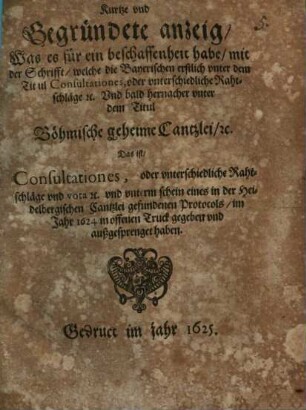 Kurtze vnd
Begründete anzeig/
Was es für ein beschaffenheit habe/ mit
der Schrifft/ welche die Bayerischen erstlich vnter dem
Titul Consultationes, oder vnterschiedliche Raht-
schläge ꝛc. Vnd bald hernacher vnter
dem Titul
Böhmische geheime Cantzlei/ꝛc.
Das ist/
Consultationes, oder vnterschiedliche Raht-
schläge vnd vota ꝛc. vnd vnterm schein eines in der Hei-
delbergischen Cantzlei gefundenen Protocols/ im
Jahr 1624 in offenen Truck gegeben vnd
außgesprenget haben.
Gedruct im jahr 1625.